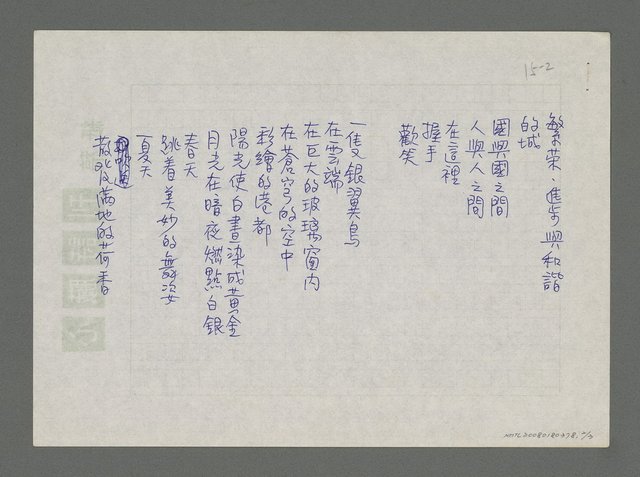 15-2
繁荣、進步與和諧
的城
國與國之間
人與人之間
在這裡
握手
歡笑
一隻銀翼鳥
在雲端
在巨大的玻璃窗內
在蒼穹的空中
彩繪的港都
陽光使白晝染成黃金
月光在暗夜燃點白銀
春天
跳着美妙的舞姿
夏天
散發滿地的荷香
NMTL20080180478.